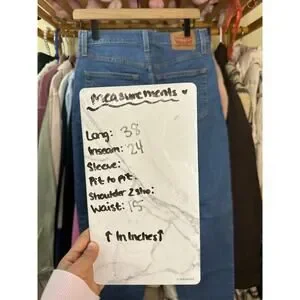 Measurements ♥
Long: 38
Inseam: 24
Sleeve:
Pit to Pit:
Shoulder 2 Sho:
Waist: 15
↑ In Inches ↑